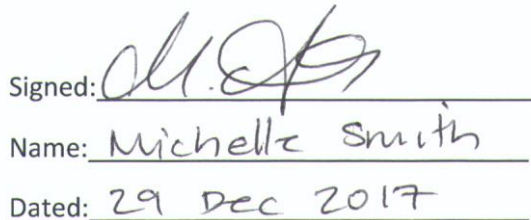 Signed:
Name: Michelle Smith
Dated: 29 Dec 2017